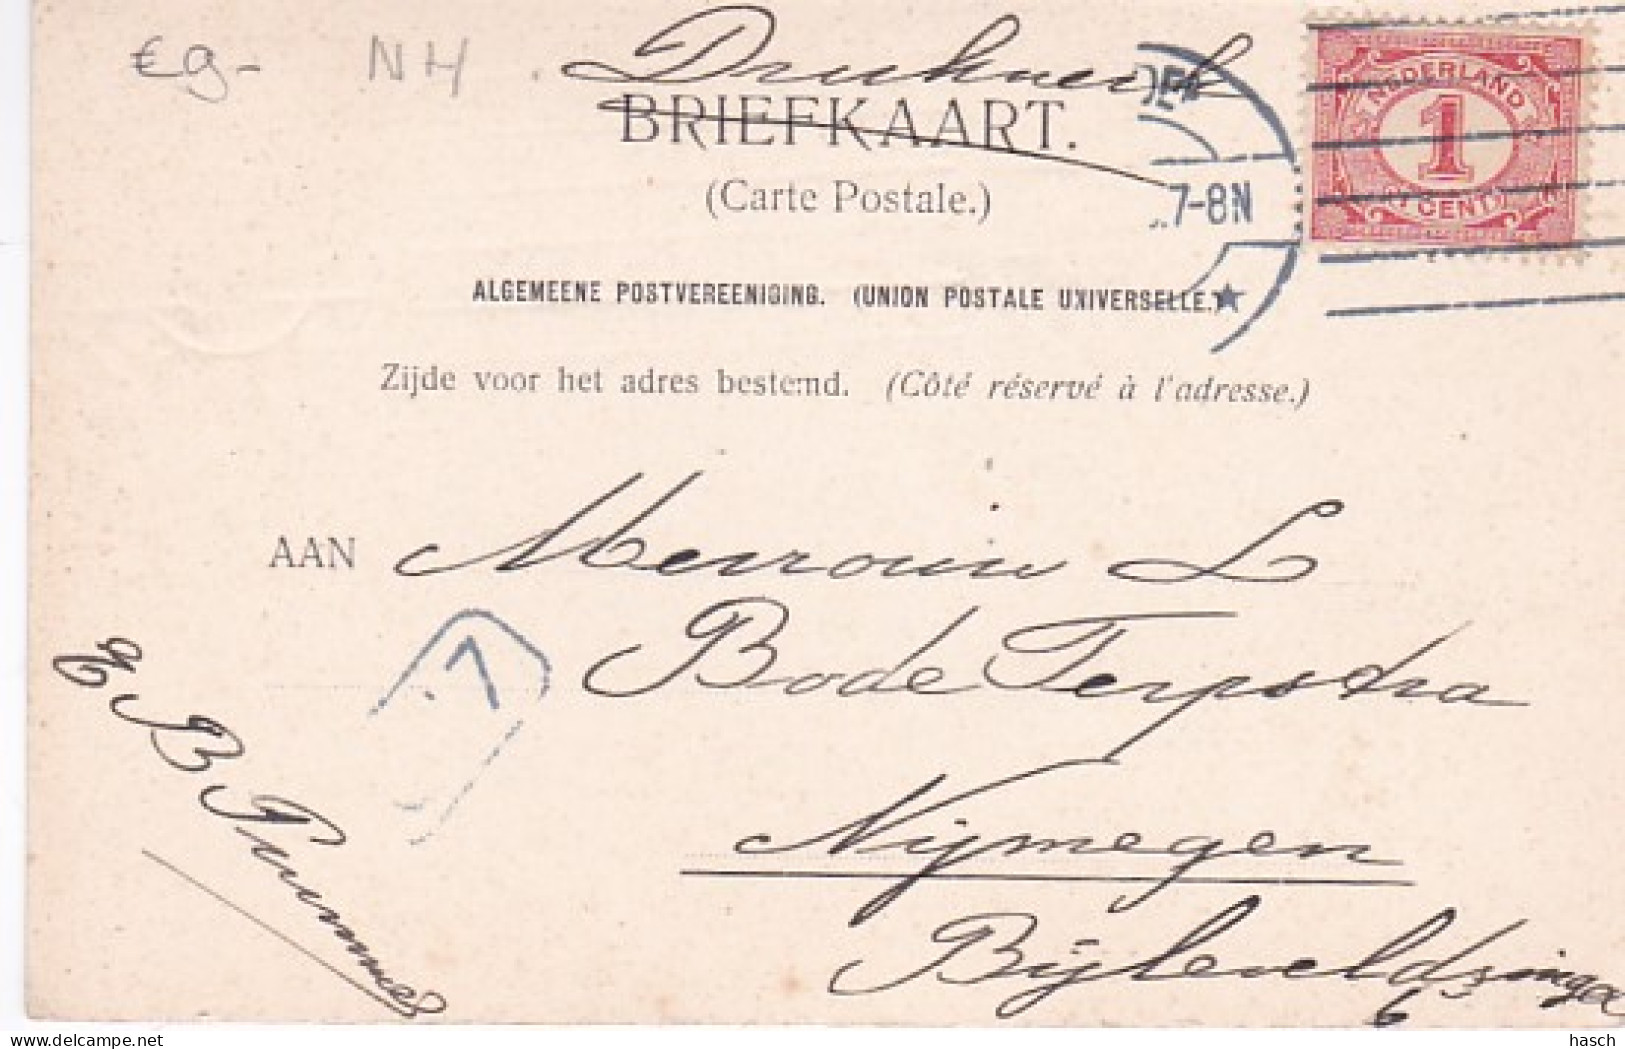 €9,- NH Drukwerk
BRIEFKAART.
(Carte Postale.)
NEDERLAND
1
CENT
7-8N
ALGEMEENE POSTVEREENIGING. (UNION POSTALE UNIVERSELLE.)
Zijde voor het adres bestemd. (Côté réservé à l'adresse.)
AAN Mevrouw L
Bode Terpstra
Nijmegen
Bijleveldsingel
6
hasch